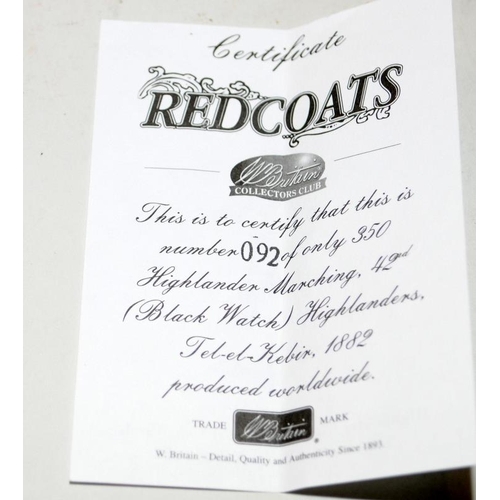 Certificate
REDCOATS
W. Britain
COLLECTORS CLUB
This is to certify that this is
number 092 of only 350
Highlander Marching, 42nd
(Black Watch) Highlanders,
Tel-el-Kebir, 1882
produced worldwide.
TRADE W. Britain MARK
W. Britain – Detail, Quality and Authenticity Since 1893.